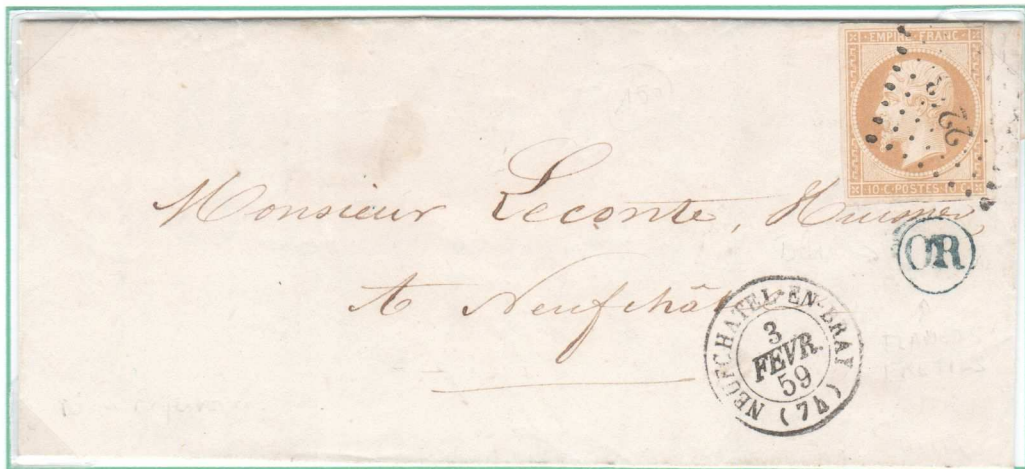 EMPIRE FRANC
10·C·POSTES·10·C
Monsieur Leconte, Huissier
OR
A Neufchâtel
NEUFCHATEL-EN-BRAY (74)
3
FEVR.
59